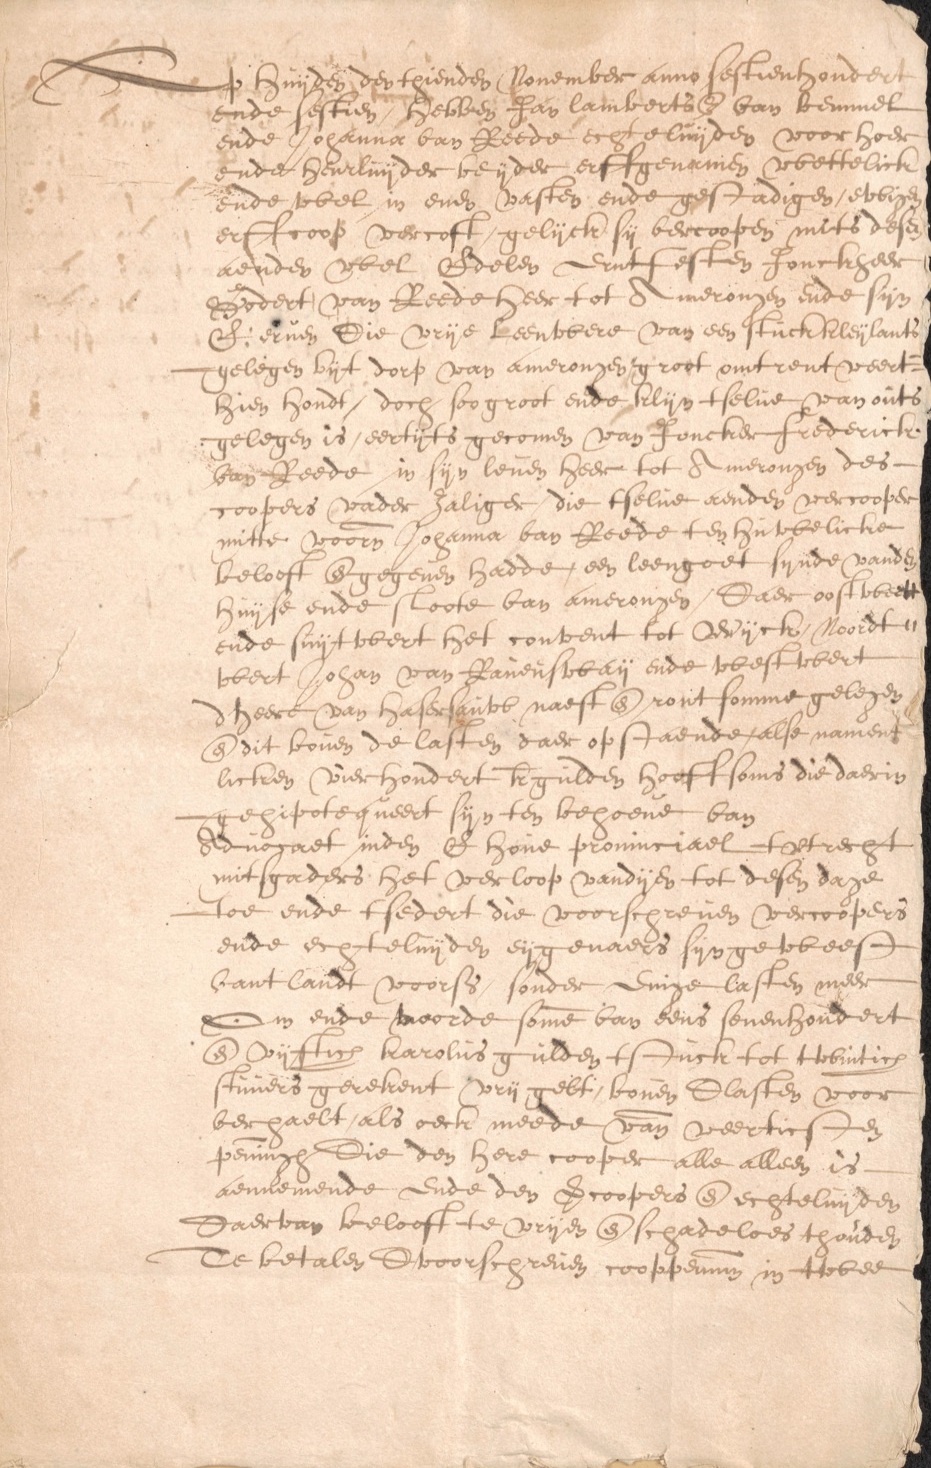 Op huijden den thienden November anno sestienhondert
ende sestien, hebben Jan lambertss van bemmel
ende Johanna van Reede echteluijden voor hoer
ende heurluijder beijder erffgenamen wettelick
ende wel in enen vasten ende gestadigen, ewigen
erffcoop vercoft, gelijck sij vercoopen mits desen
aenden wel Edelen Erntfesten Jonckheer
Godert van Reede heer tot Amerongen ende sijn
E: erven Die vrije Leenwere van een stuck kleylants
gelegen bijt dorp van amerongen, groot omtrent veert=
hien hondt, doch soo groot ende klijn tselve van outs
gelegen is, eertijts gecomen van Joncker Frederick
van Reede in sijn leven heer tot Amerongen des
coopers vader zaliger, die tselve aenden vercooper
mitte voorn Johanna van Reede ten huwelicke
belooft en gegeven hadde, een leengoet sijnde vanden
huijse ende sloote van amerongen, Daer oostweert
ende suijtwert het convent tot Wijck, Noordt"
wert Johan van Ravenswaij ende westwert
dheere van hasersauw naest en ront somme gelegen
en dit boven de lasten daer op staende, alse nament
licken vierhondert k gulden hooftsoms die daerin
gehipotequeert sijn ten behoeve van
Advocaet inden E hove provinciael tvtrecht
mitsgaders het verloop vandijen tot desen dage
toe ende tsedert die voorschreven vercoopers
ende echteluijden eijgenaers sijn geweest
vant landt voorss, sonder Enige lasten meer
Om ende voorde some van eens sevenhondert
en vijftich karolus gulden tstuck tot twintich
stuvers gerekent vrij gelt, boven Dlasten voor
verhaelt, als oeck meede van veerticsten
penningh Die den here cooper alle alleen is
aennemende Ende den vercoopers en echteluijden
Daervan belooft te vrijen en schadeloes thouden
Te betalen Dvoorschreven cooppennin in twee